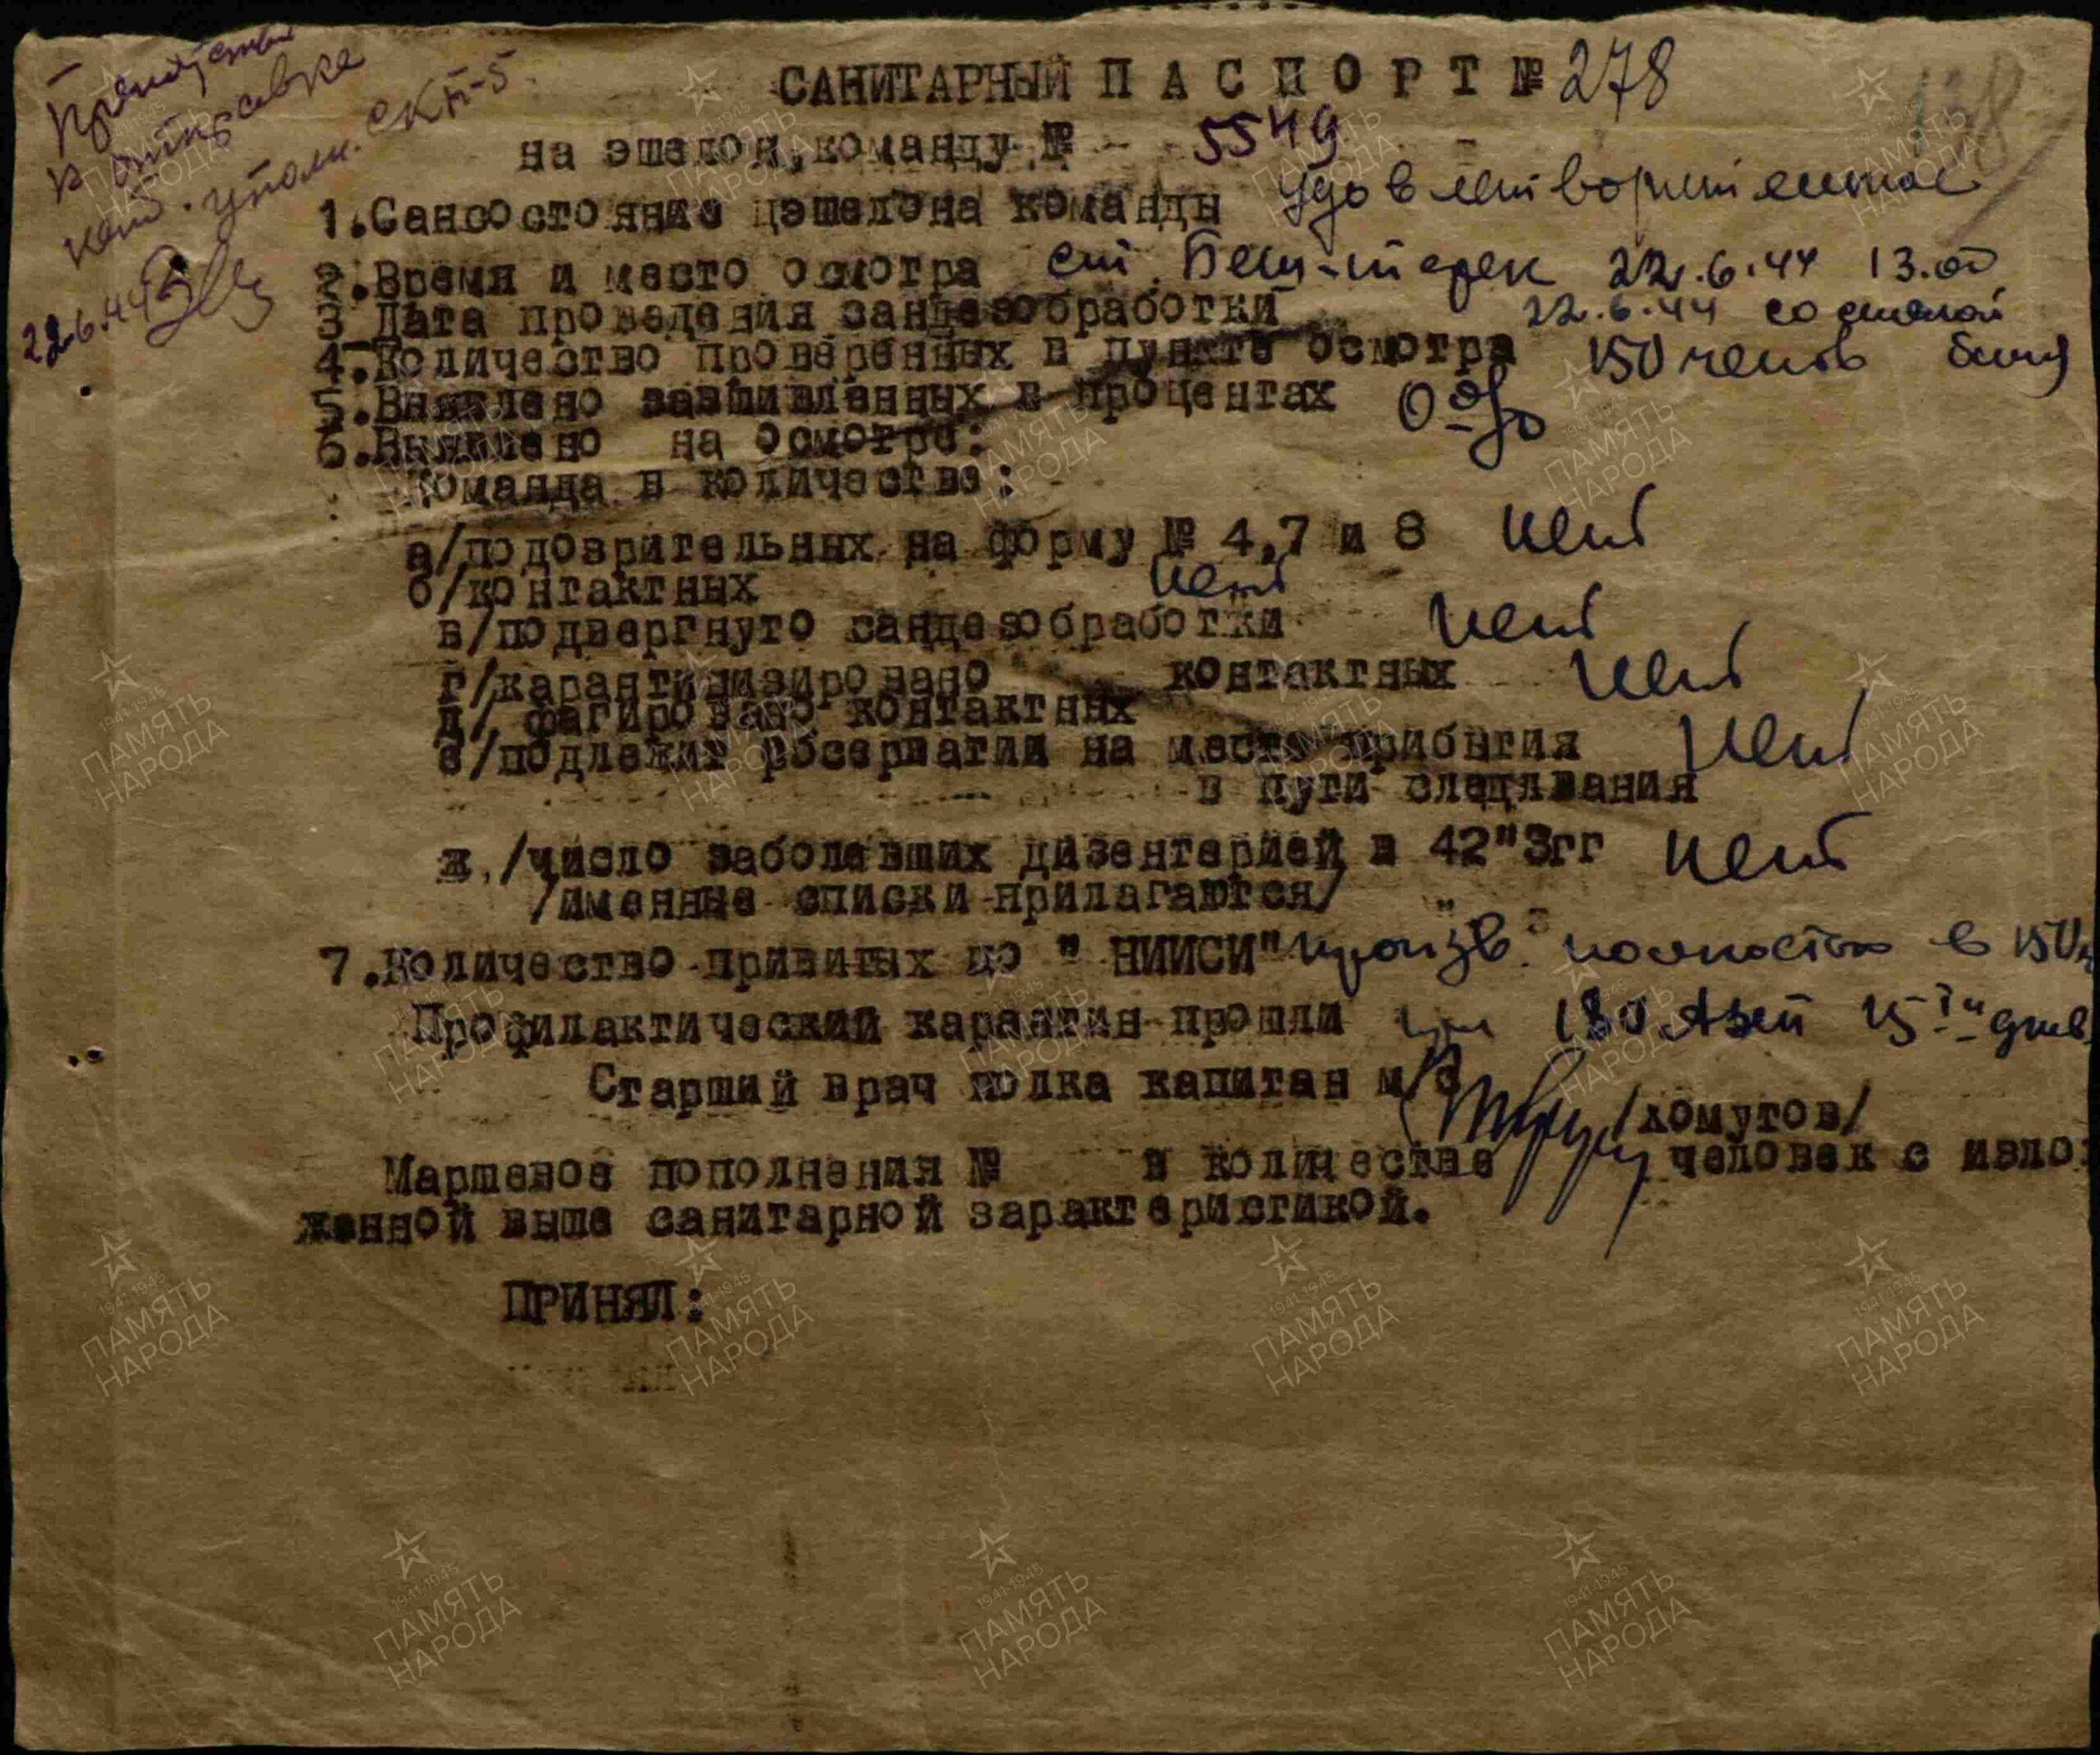 к отправке
уполн. СКП-5
22.6.44
САНИТАРНЫЙ П А С П О Р Т № 278
на эшелон, команду № 5549
1.Сансостояние цэшелона команды удовлетворительное
2.Время и место осмотра ст. Беш-терек 22.6.44 13.00
3 Дата проведения сандезобработки 22.6.44 со сменой
4.Количество проверенных в пункте осмотра 150 человек белья
5.Выявлено завшивленных в процентах 0%
6.Выявлено на осмотре:
Команда в количестве:
а/подозрительных на форму № 4,7 и 8 нет
б/контактных нет
в/подвергнуто сандезобработки нет
г/карантинизировано контактных нет
д/ фагировано контактных
е/подлежит обсервации на месте прибытия нет
в пути следлвания
ж./число заболевших дизентерией в 42"3гг нет
/именные списки прилагаются/
7.Количество привитых по "НИИСИ" произв. полностью в 150
Профилактический карантин прошли при 180 АЗСП 15 дней
Старший врач полка капитан м/с /Хомутов/
Маршевое пополнения № в количестве человек с изло
женной выше санитарной зарактеристикой.
ПРИНЯЛ:
1941-1945
ПАМЯТЬ
НАРОДА